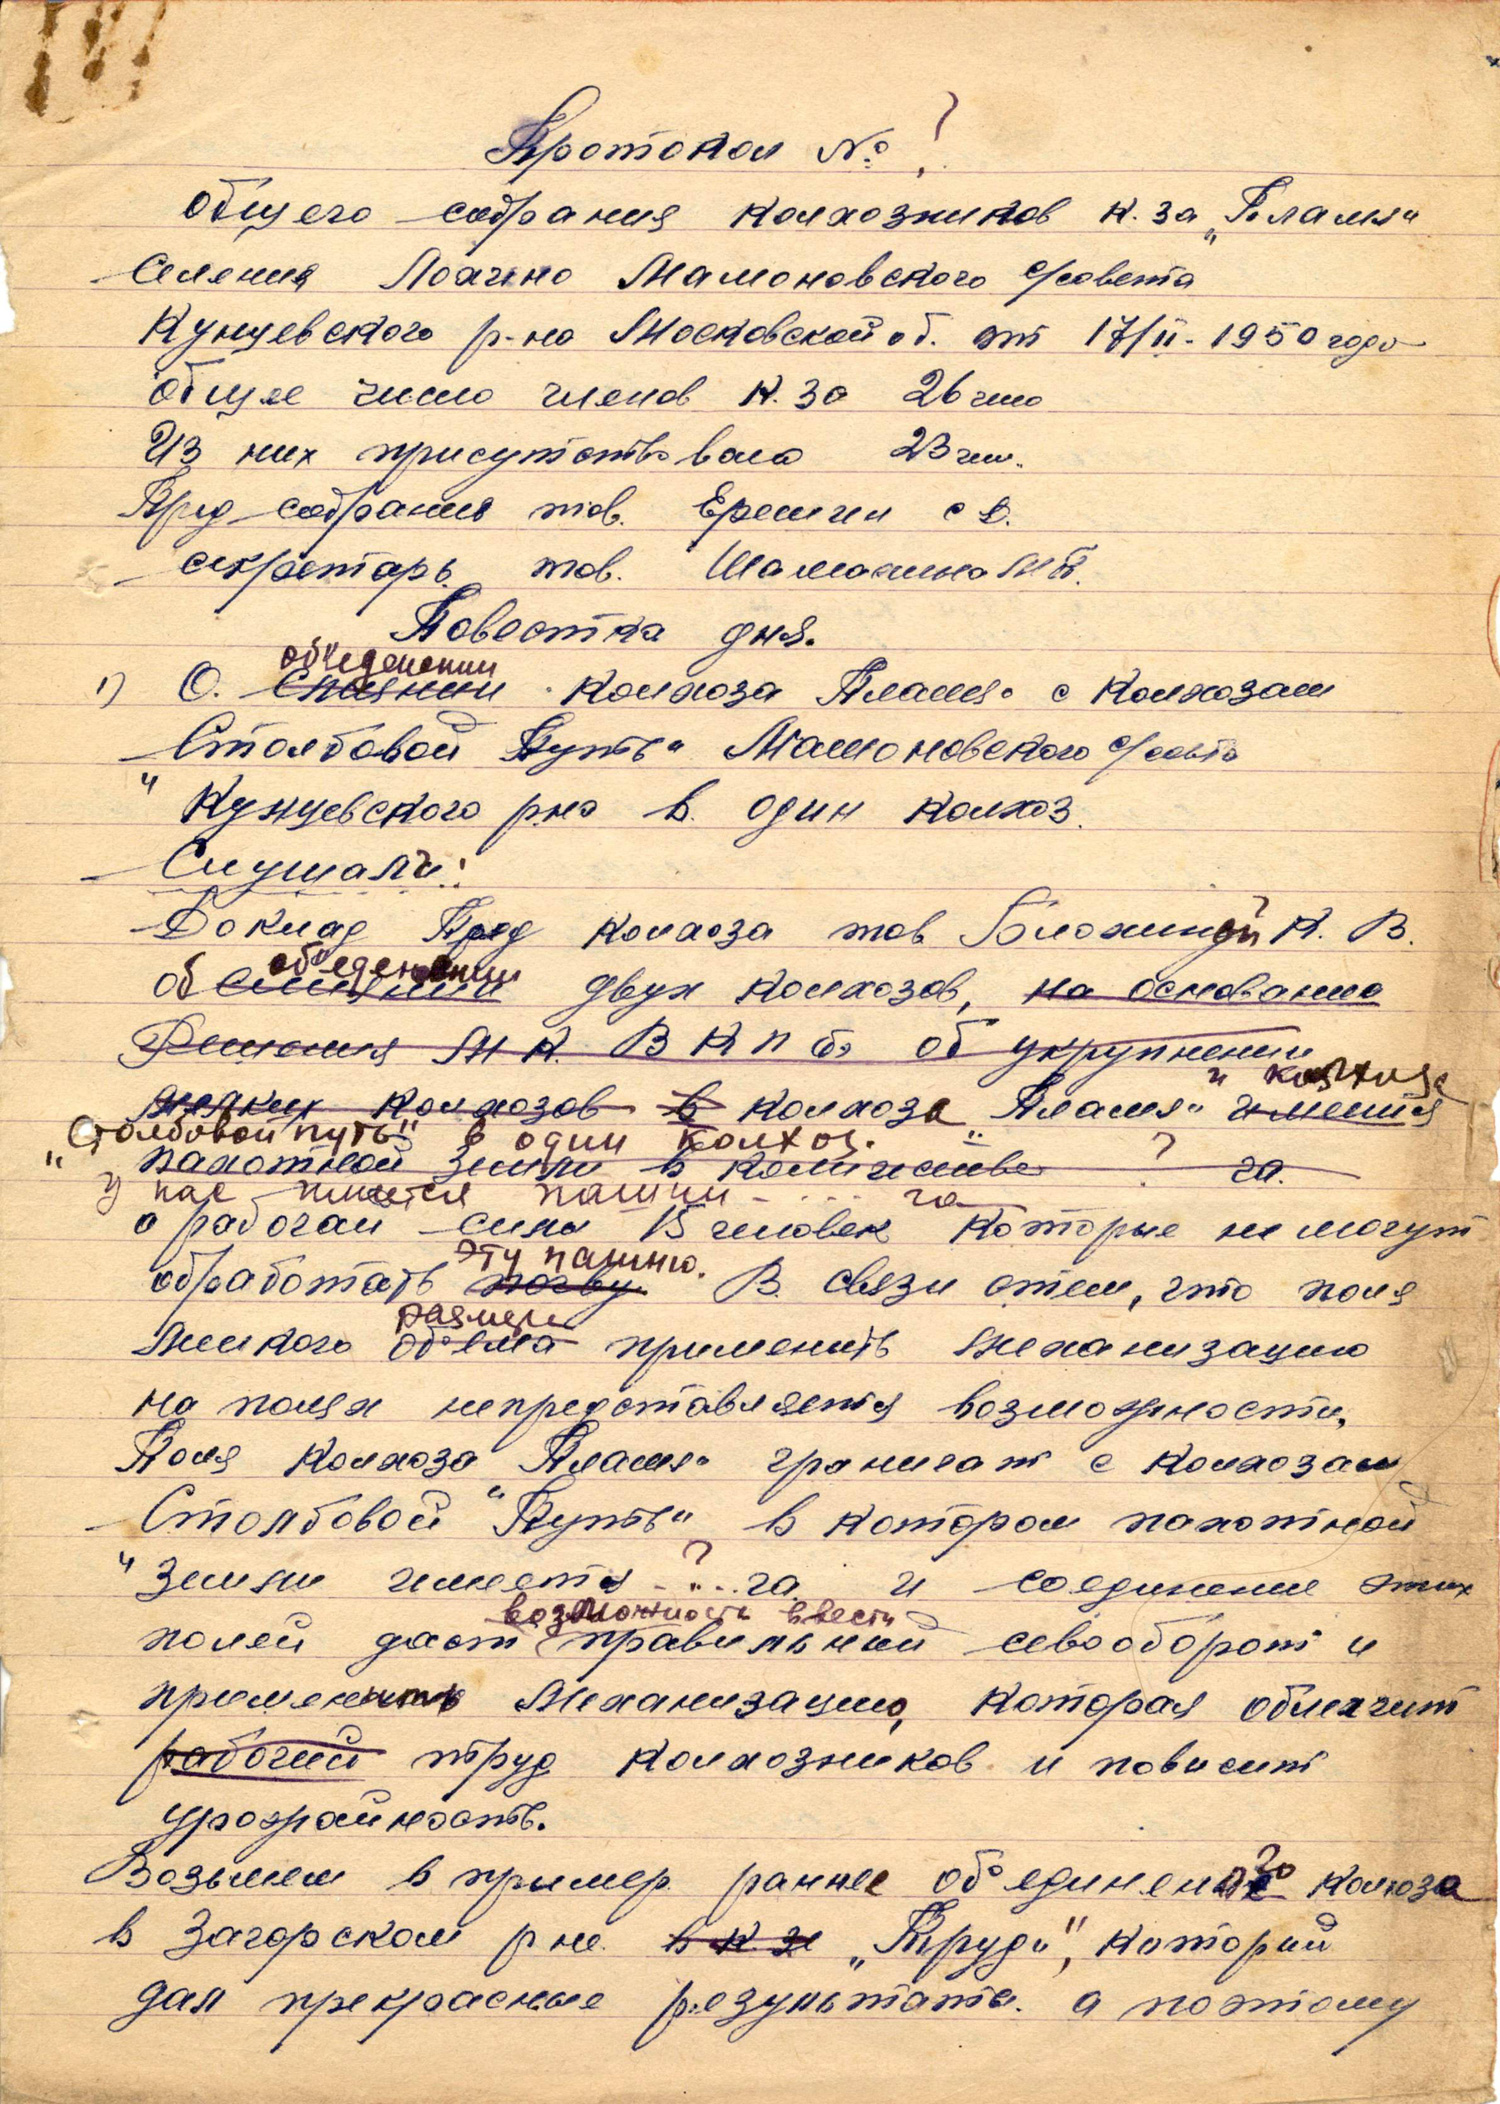 Протокол № ?
общего собрания колхозников к.за „Пламя"
Селения Лохино Мамоновского с/совета
Кунцевского р-на Московской об. от 17/II-1950 года
общее число членов к.за 26 чел
Из них присутствовало 23 чел.
Пред собрания тов. Еремин С Д.
секретарь тов. Шамахина М П.
Повестка дня.
объеденении
1) О. Слиянии колхоза Пламя" с колхозам
Столбовой Путь" Мамоновского с/совета
" Кунцевского р.на в. один колхоз.
Слушали:
Доклад Пред колхоза тов Блохиной К. В.
объеденении
об слиянии двух колхозов, на основании
Решения М К. В К П б. об укрупнении
и колхоза
мелких колхозов в колхоза „Пламя" имеется
„Столбовой путь" в один колхоз.
пахотной земли в количестве ? га.
у нас имеется пашни - ... га
а рабочай силы 15 человек которые не могут
эту пашню.
обработать почву. В. связи стем, что поля
размера
мелкого обьема применить механизацию
на полях непредставляется возможности.
Поля колхоза „Пламя" граничат с колхозам
Столбовой Путь" в котором пахотной
" Земли имеется ...?... га и соединение этих
возможность ввести
полей даст правильный севооборот и
применить механизацию, которая облехчит
рабочий труд колхозников и повисит
урожайность.
Возьмем в пример раннее обьединеного колхоза
в Загорском р не в к зе „Труд", который
дал прекрасные результаты. а поэтому